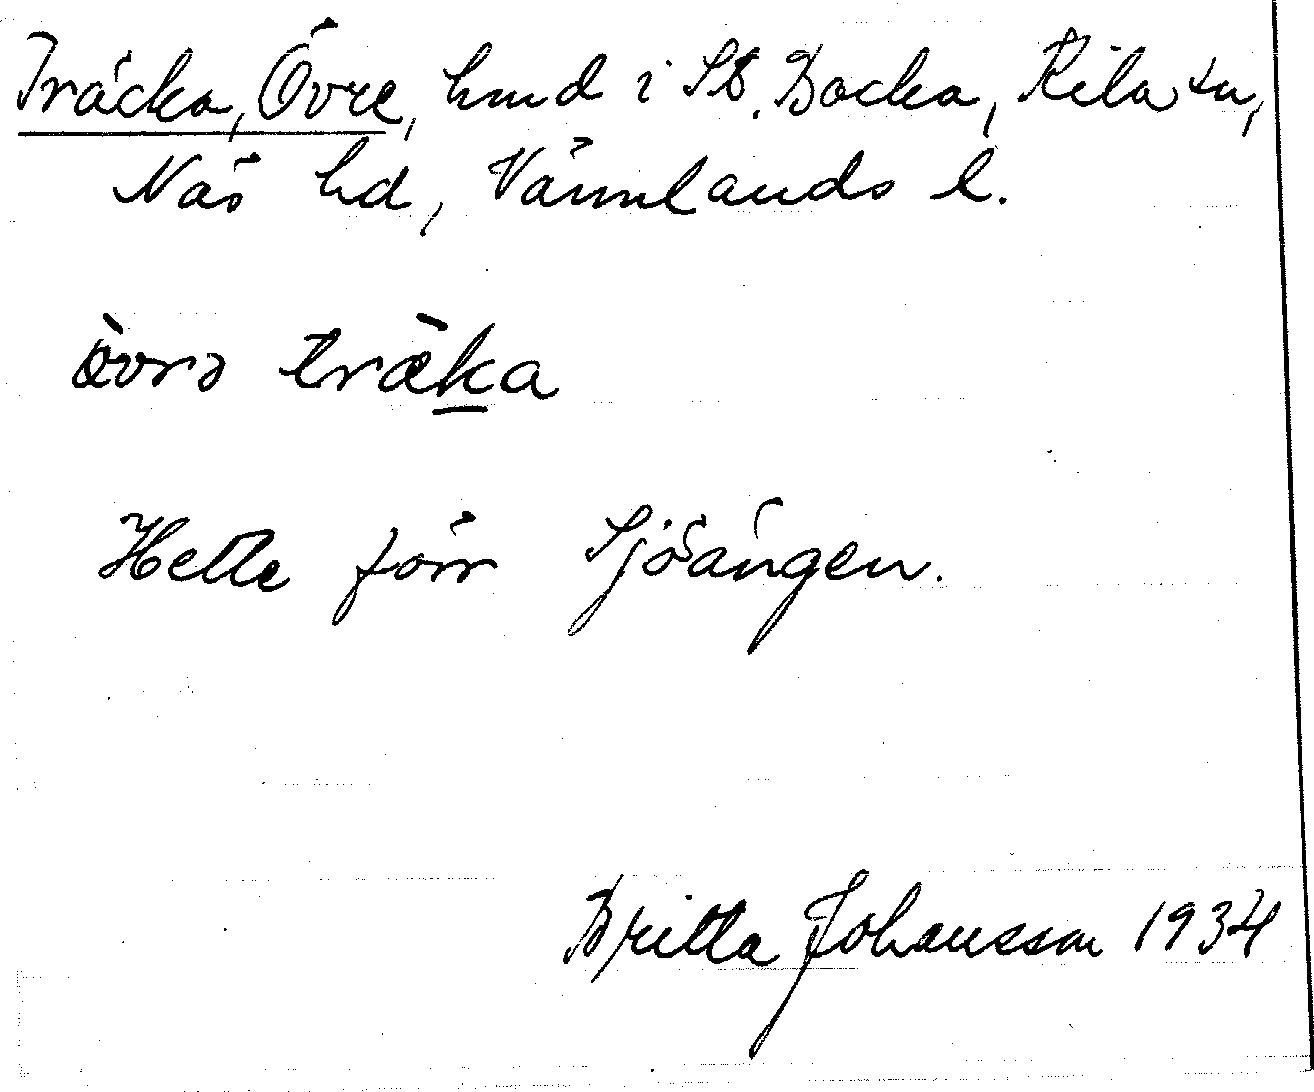 Träcka, Övre, hmd i St. Backa, Kila sn,
Näs hd, Värmlands l.
òvrə træ̀ka
Hette förr Sjöängen.
Britta Johansson 1934